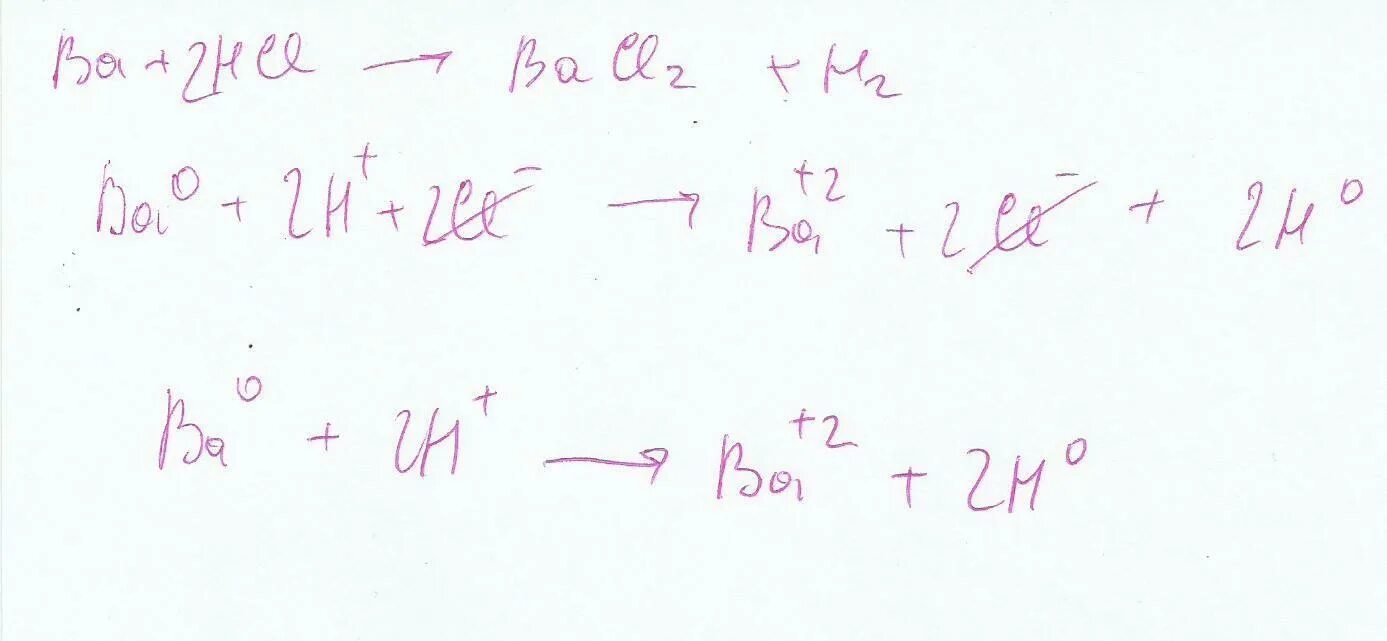 Ba + 2HCl → BaCl₂ + H₂
Ba⁰ + 2H⁺ + 2Cl⁻ → Ba⁺² + 2Cl⁻ + 2H⁰
Ba⁰ + 2H⁺ → Ba⁺² + 2H⁰